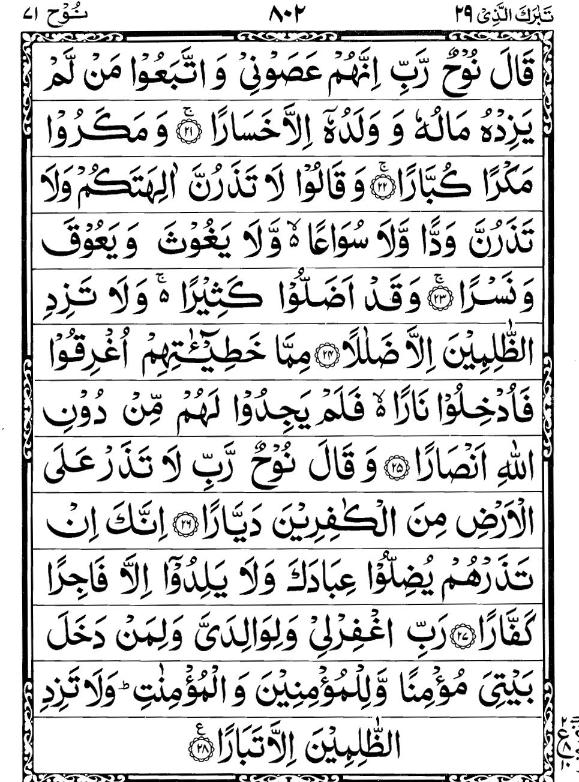 تَبٰرَكَ الَّذِیْ ٢٩
٨٠٢
نُوْح ٧١
قَالَ نُوْحٌ رَّبِّ اِنَّهُمْ عَصَوْنِیْ وَ اتَّبَعُوْا مَنْ لَّمْ
یَزِدْهُ مَالُهٗ وَ وَلَدُهٗۤ اِلَّا خَسَارًا ۚ﴿٢١﴾ وَ مَكَرُوْا
مَكْرًا كُبَّارًا ۚ﴿٢٢﴾ وَ قَالُوْا لَا تَذَرُنَّ اٰلِهَتَكُمْ وَلَا
تَذَرُنَّ وَدًّا وَّلَا سُوَاعًا ۙ۬ وَّلَا یَغُوْثَ وَ یَعُوْقَ
وَ نَسْرًا ۚ﴿٢٣﴾ وَ قَدْ اَضَلُّوْا كَثِیْرًا ۚ۬ وَلَا تَزِدِ
الظّٰلِمِیْنَ اِلَّا ضَلٰلًا ﴿٢٤﴾ مِمَّا خَطِیْٓـٰٔتِهِمْ اُغْرِقُوْا
فَاُدْخِلُوْا نَارًا ۙ۬ فَلَمْ یَجِدُوْا لَهُمْ مِّنْ دُوْنِ
اللّٰهِ اَنْصَارًا ﴿٢٥﴾ وَ قَالَ نُوْحٌ رَّبِّ لَا تَذَرْ عَلَی
الْاَرْضِ مِنَ الْكٰفِرِیْنَ دَیَّارًا ﴿٢٦﴾ اِنَّكَ اِنْ
تَذَرْهُمْ یُضِلُّوْا عِبَادَكَ وَلَا یَلِدُوْۤا اِلَّا فَاجِرًا
كَفَّارًا ﴿٢٧﴾ رَبِّ اغْفِرْلِیْ وَلِوَالِدَیَّ وَلِمَنْ دَخَلَ
بَیْتِیَ مُؤْمِنًا وَّلِلْمُؤْمِنِیْنَ وَ الْمُؤْمِنٰتِ ؕ وَلَا تَزِدِ
الظّٰلِمِیْنَ اِلَّا تَبَارًا ﴿٢٨﴾ ع